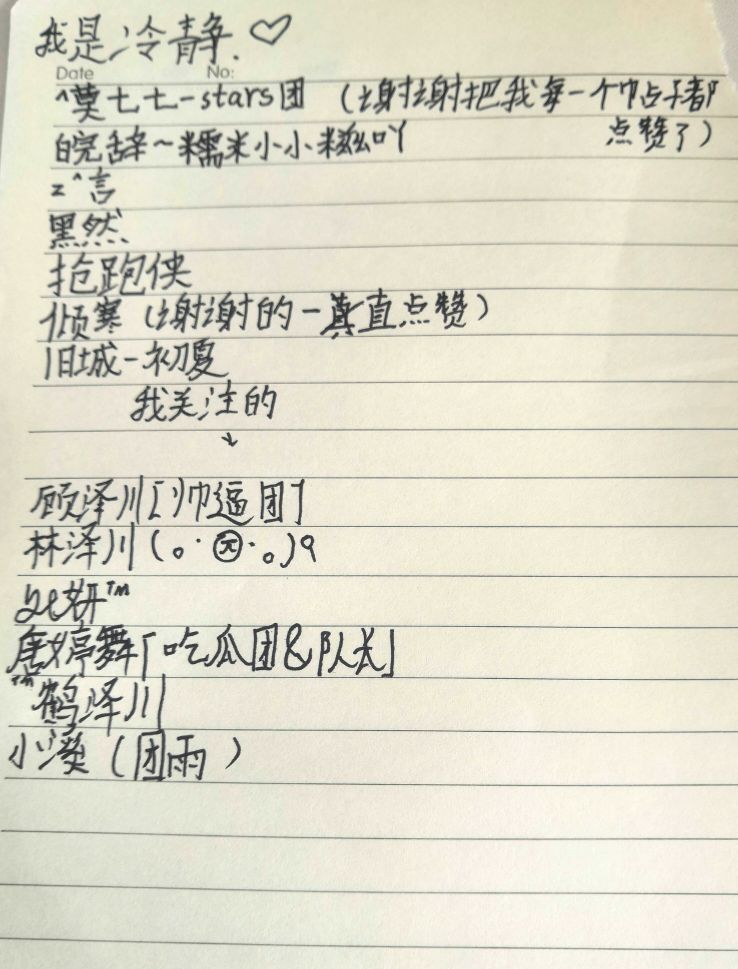 我是冷静.♡
Date No:
^莫七七-stars团 (谢谢把我每一个帖子都
点赞了)
皖辞~糯米小小糍吖
z^言
黑然
抢跑侠
倾寒(谢谢的一真直点赞)
旧城-初夏
我关注的
↘
顾泽川[帅逼团]
林泽川(。·㉨·。)9
ye妍™
唐婷舞「吃瓜团&队长」
™鹤泽川
小漠(团雨)